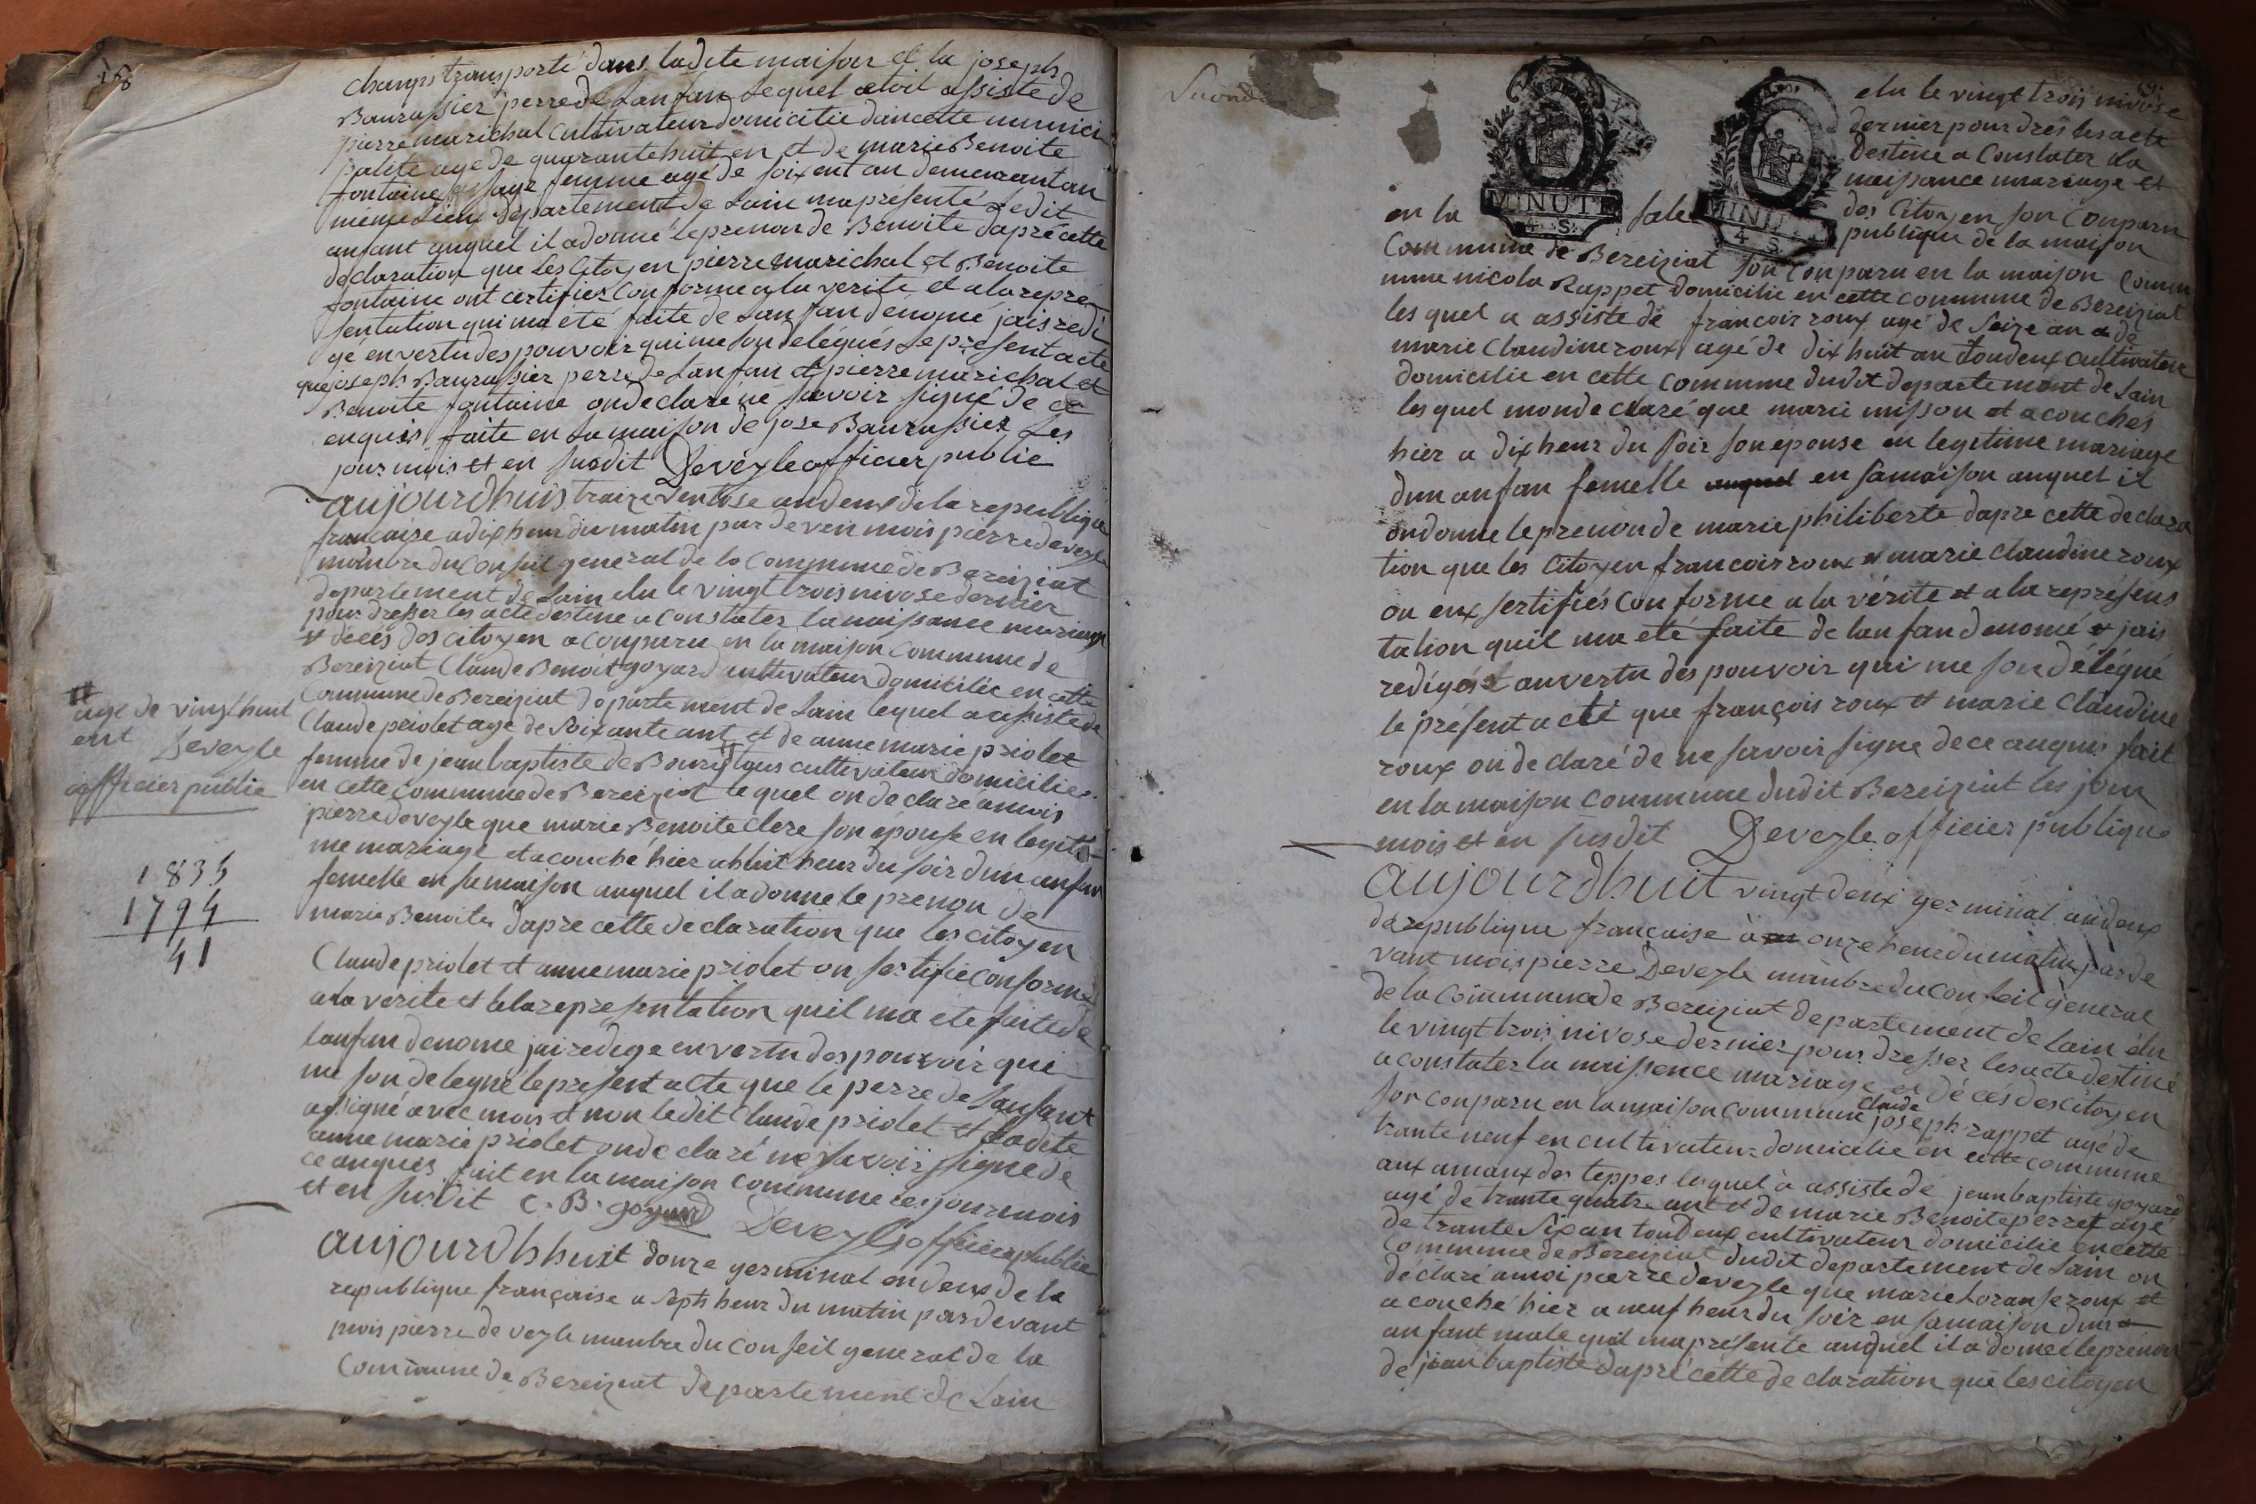 18
champs transporté dans ladite maison et la joseph
Baurassier perre de Lanfan Lequel etoit assisté de
pierre marichal cultivateur domicilie dancette munici
palité agé de quarante huit en et de marie Benoite
fontaine sage femme agé de soixent an demeurant an
même Lieu département de Lain ma présenté Ledit
anfant auquel il a donné le prenon de Benoite daprè cette
declaration que Les Citoyen pierre marichal et Benoite
fontaine ont certifiés Conforme a la verité et a la repre
sentation qui ma eté faite de Lanfan dénomé jais redi
gé en vertu des pouvoir qui me son délégués Le present acte
que joseph Baurassier perre de Lanfan et pierre marichal et
Benoite fontaine on declaré ne savoir signé de ce
enquis faite en La maison de jose Baurassier Les
jour mois et en susdit Deveyle officier public
aujourdhuis traize ventose an deux de la republique
francaise a dix heur du matin par deven mois pierre deveyle
mambre du Conseil general de la Commune de Bereiziat
departement de Lain elu le vingt trois nivose dernier
pour dresser les acte destine a constater la naissance mariage
et décés des citoyen a conparu en la maison Commune de
Bereiziat Claude Benoit goyard cultivateur domicilie en cette
Commune de Bereiziat departement de Lain lequel a assiste de
Claude priolet age de soixante ant et de anne marie priolet
femme de jean baptiste de Bourg tous cultivateur domicilie
en cette commune de Bereiziat lequel on declaré a mois
pierre deveyle que marie Benoite Clere son épouse en legiti
me mariage et a couché hier a huit heur du soir dun anfan
femelle en sa maison auquel il a donne le prenon de
marie Benoite dapre cette declaration que les citoyen
Claude priolet et anne marie priolet on sertifie conforme
a la verite et a la representation quil ma ete faite de
lanfan denome jai redige en vertu des pouvoir qui
me son delegué le present acte que le perre de Lanfant
a signé avec mois et non ledit Claude priolet et Ladite
anne marie priolet on declaré ne savoir signé de
ce anquis fait en la maison commune les jour mois
et en susdit C. B. goyard Deveyle officier public
aujourdhhuit douze germinal en deux de la
republique française a sept heur du matin par devant
mois pierre de veyle manbre du Conseil general de la
Commune de Bereiziat departement de Lain
age de vingt huit
ent Deveyle
officier public
1835
1794
41
elu le vingt trois nivose
dernier pour dres les acte
destine a Constater la
naissance mariage et
des Citoyen son Conparu
publique de la maison
MINUTE
4 S.
MINUTE
4 S.
en la sale
Commune de Bereiziat son conparu en la maison Comm
mune nicola Rappet domicilie en cette commune de Bereiziat
les quel a assiste de francoir roux agé de seize an et de
marie Claudine roux agé de dix huit an toudeux cultivateur
domicilie en cette commune dudit departement de Lain
lesquel mon declaré que marie misson et a couchés
hier a dix heur du soir son epouse en legitime mariage
dun anfan femelle auquel en sa maison auquel il
on donne le prenon de marie philiberte dapre cette declara
tion que les Citoyen francoir roux et marie Claudine roux
on eux sertifiés Conforme a la vérite et a la représens
tation quil ma eté faite de lanfan denomé et jais
redigés et an vertu des pouvoir qui me son délégué
le présent acté que françois roux et marie Claudine
roux on declaré de ne savoir signe de ce anquis fait
en la maison commune dudit Bereiziat les jour
mois et en susdit Deveyle officier publique
aujourdhuit vingt deux germinal an deux
de republique francaise à onze heur du matin par de
vant mois pierre Deveyle mambre du Conseil general
de la Commune de Bereiziat departement de Lain élu
le vingt trois nivose dernier pour dresser les acte destiné
a constater la naissence mariage et décés des citoyen
son conparu en la maison commune Claude joseph rappet agé de
trante neuf en cultivateur domicilie en cette commune
aux amaux des teppes lequel à assiste de jean baptiste goyard
agé de trante quatre ant et de marie Benoite perret agé
de trante six an tou deux cultivateur domicilie en cette
Commune de Bereiziat dudit departement de Lain on
déclaré a moi pierre deveyle que marie Loranse roux et
a couché hier a neuf heur du soir en sa maison dun
anfant male quil ma présente auquel il a donné le prenon
de jean baptiste dapré cette declaration que les citoyen